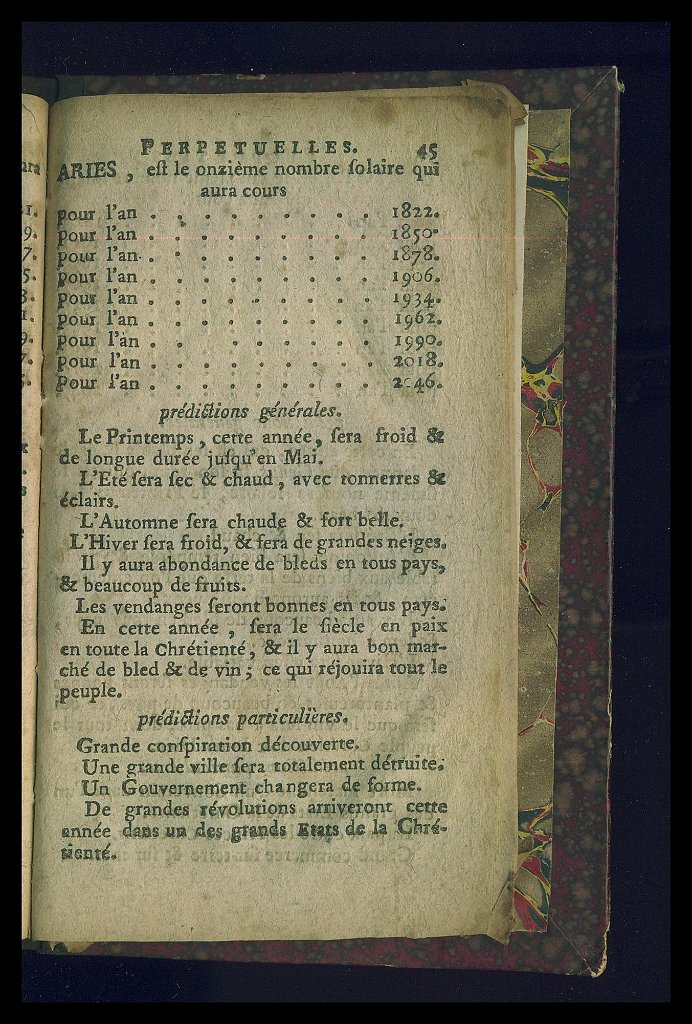 PERPETUELLES. 45
ARIES, eſt le onzième nombre ſolaire qui
aura cours
pour l'an . . . . . . . . . 1822.
pour l'an . . . . . . . . . 1850.
pour l'an . . . . . . . . . 1878.
pour l'an . . . . . . . . . 1906.
pour l'an . . . . . . . . . 1934.
pour l'an . . . . . . . . . 1962.
pour l'an . . . . . . . . . 1990.
pour l'an . . . . . . . . . 2018.
pour l'an . . . . . . . . . 2046.
prédictions générales.
Le Printemps, cette année, ſera froid &
de longue durée juſqu'en Mai.
L'Eté ſera ſec & chaud, avec tonnerres &
éclairs.
L'Automne ſera chaude & fort belle.
L'Hiver ſera froid, & ſera de grandes neiges.
Il y aura abondance de bleds en tous pays,
& beaucoup de fruits.
Les vendanges ſeront bonnes en tous pays.
En cette année, ſera le ſiècle en paix
en toute la Chrétienté, & il y aura bon mar-
ché de bled & de vin; ce qui réjouira tout le
peuple.
prédictions particulières.
Grande conſpiration découverte.
Une grande ville ſera totalement détruite.
Un Gouvernement changera de forme.
De grandes révolutions arriveront cette
année dans un des grands Etats de la Chré-
tienté.